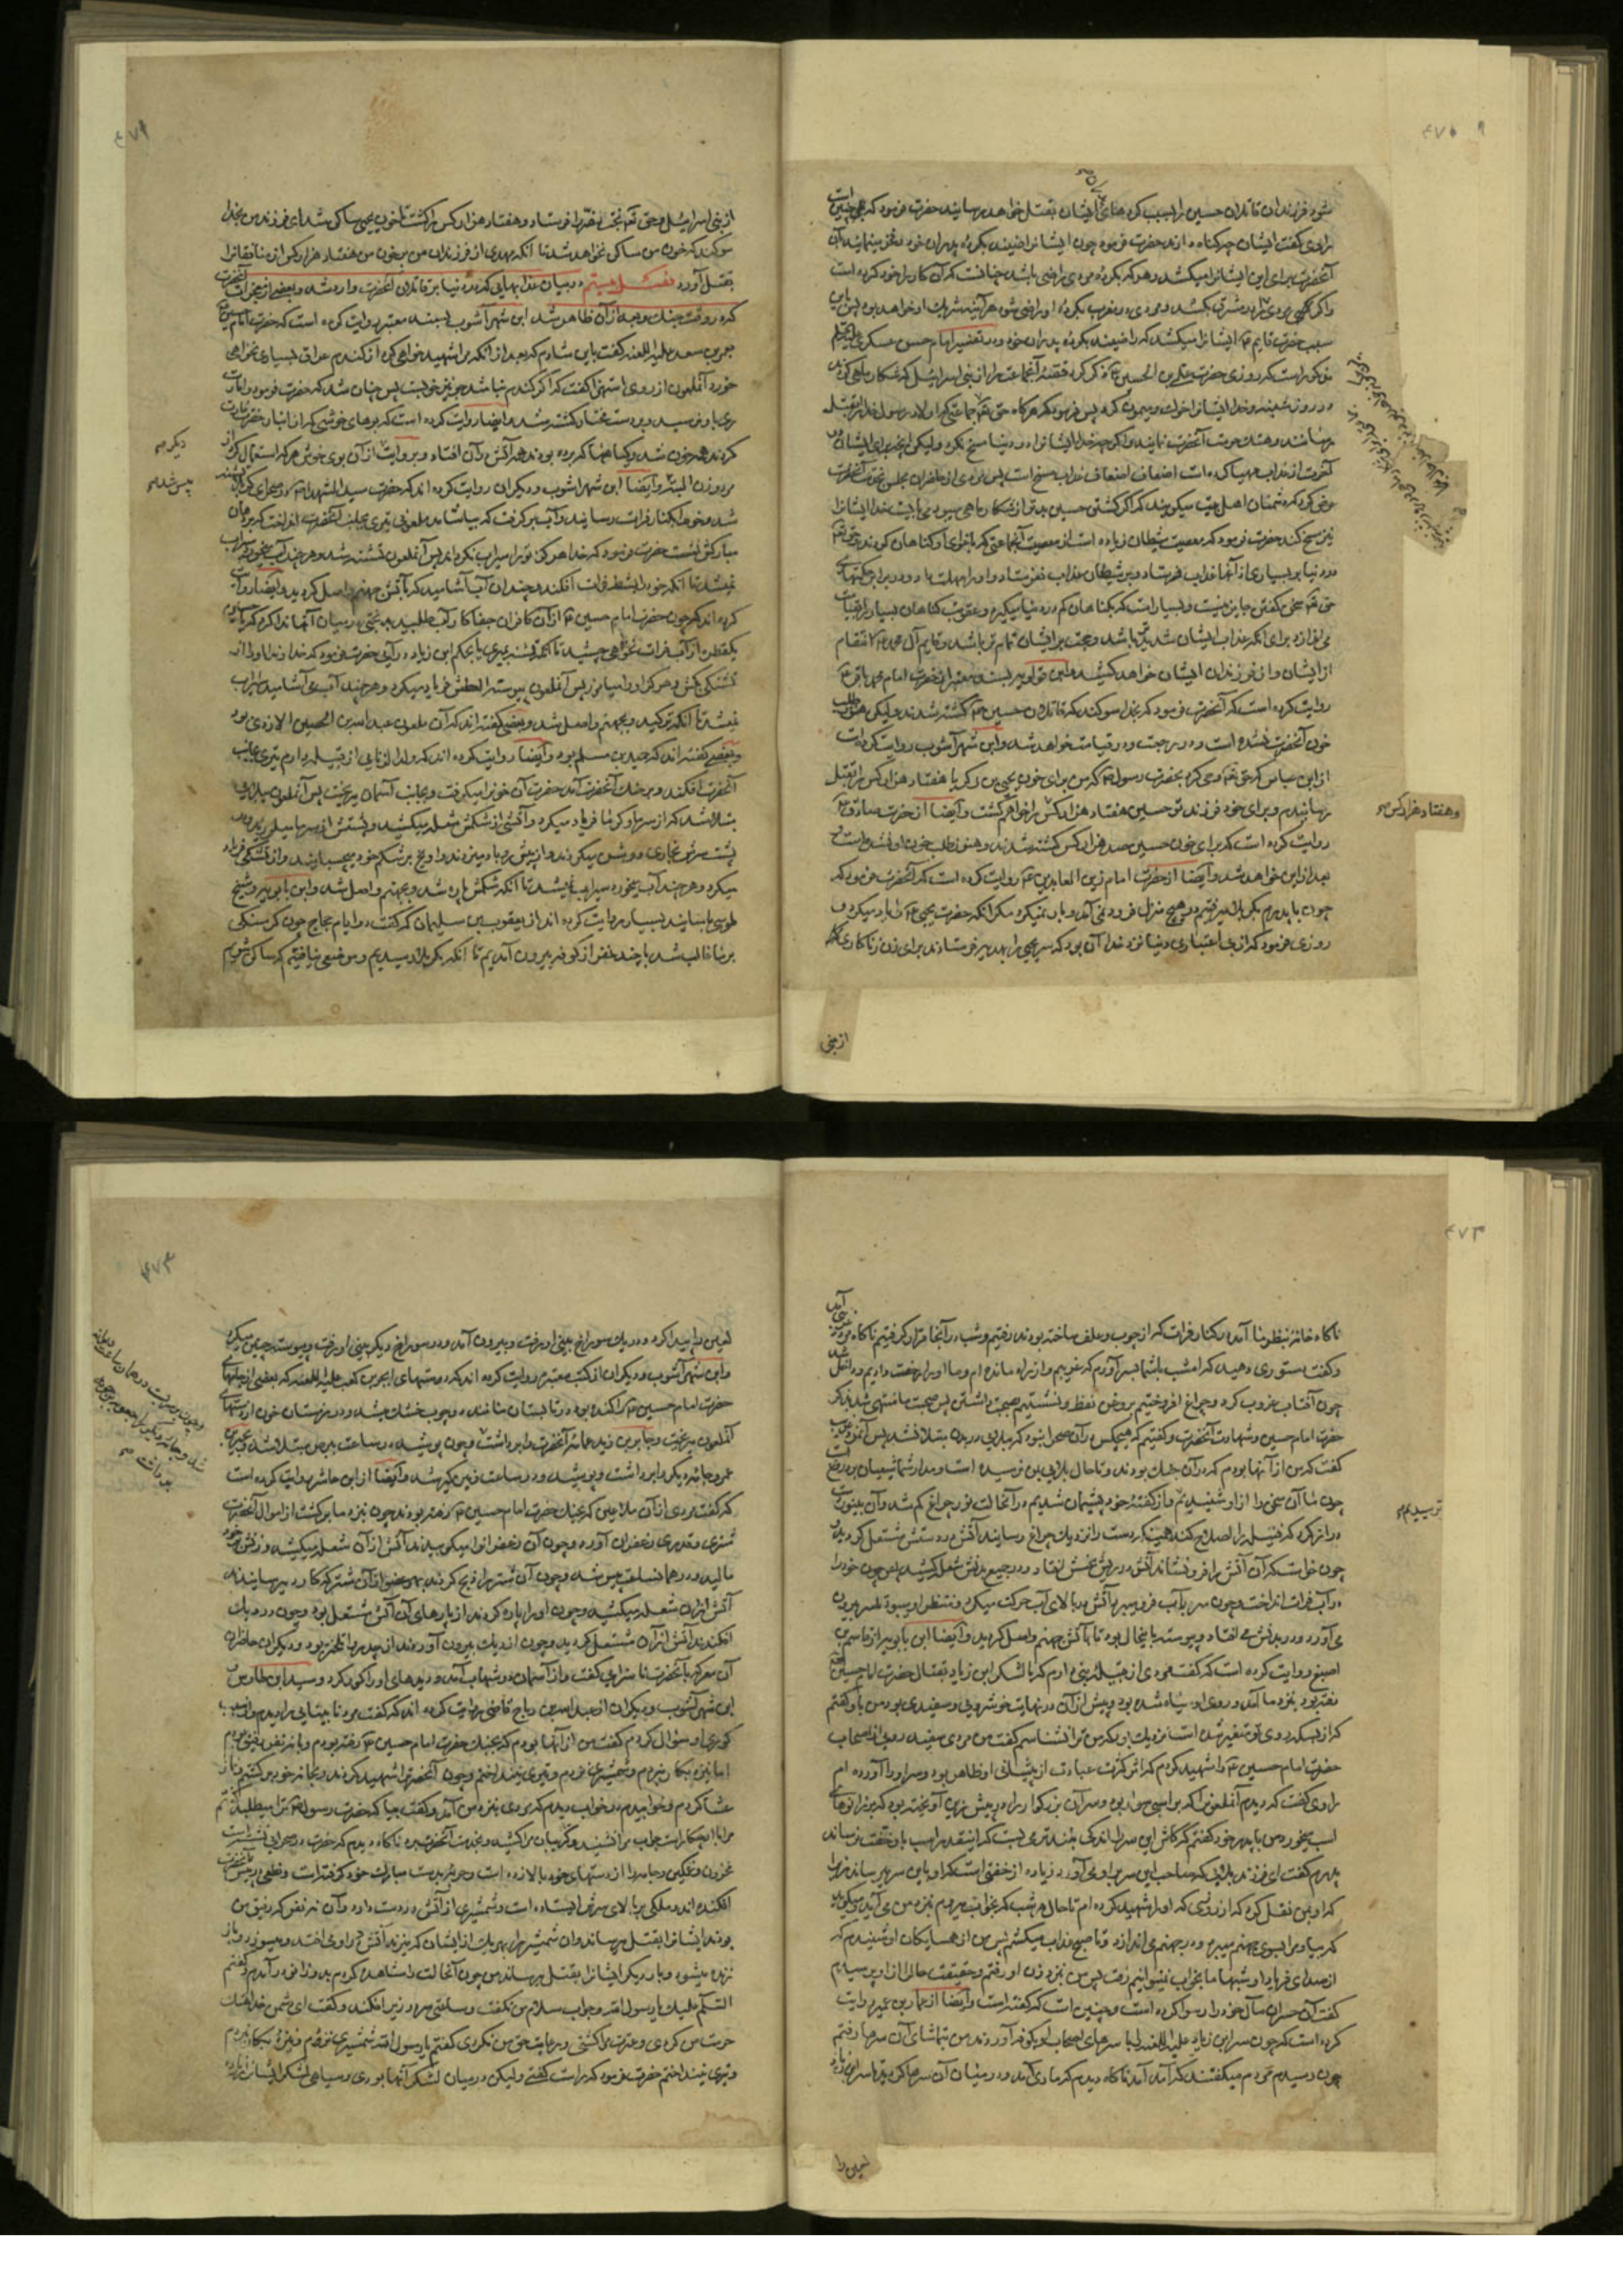 شود فرزندان قاتلان حسین را بسبب کرده‌های ایشان بقتل خواهد رسانید حضرت فرمود که چنین است
راوی گفت ایشان چه گناه دارند حضرت فرمود چون ایشان راضیند بکرده پدران خود و فخر مینمایند بآن
آنحضرت برای این ایشانرا میکشد و هر که بکرده مردی راضی باشد چنانست که آن کار را خود کرده است
و اگر کسی مردی را در مشرق بکشد و مردی در مغرب بکرده او راضی شود هر آینه شریک او خواهد بود پس باین
سبب حضرت قایم ع ایشانرا میکشد که راضیند بکرده پدران خود و در تفسیر امام حسن عسکری علیه السلم
مذکور است که روزی حضرت علی بن الحسین ع ذکر کرد قصه آنجماعت را از بنی اسرائیل که شکار ماهی کردند
در روز شنبه و خدا ایشانرا خوک و میمون کرد پس فرمود که هرگاه حق تعالی جماعتی که اولاد رسول خدا را بقتل
آخرت از عذاب مهیا کرده است اضعاف اضعاف عذاب مسخ است پس مردی از حاضران مجلس
عرض کرد که دشمنان اهل بیت میگویند که اگر کشتن حسین بدتر از شکار ماهی میبود می بایست خدا ایشانرا
نیز مسخ کند حضرت فرمود که معصیت شیطان زیاده است از معصیت آنجماعتی که باغوای او گناهان کردند حق تعالی
در دنیا بر بسیاری از آنها عذاب فرستاد و بر شیطان عذاب نفرستاد و او را مهلت داد
از ایشان و از فرزندان ایشان خواهد کشید و ابن قولویه بسند معتبر از حضرت امام محمد باقر ع
روایت کرده است که آنحضرت فرمود که بخدا سوکند که قاتلان حسین ع کشته شدند ولیکن هنوز طلب
خون آنحضرت نشده است و در رجعت و در قیامت خواهد شد و ابن شهر آشوب روایت کرده است
از ابن عباس که حق تعالی وحی کرد بحضرت رسول ص که من برای خون یحیی بن زکریا هفتاد هزار کس را بقتل
رسانیدم و برای خون فرزند تو حسین هفتاد هزار کس را خواهم کشت و ایضا از حضرت صادق ع
و هفتاد هزار کس صح
روایت کرده است که برای خون حسین صد هزار کس کشته شدند و هنوز طلب خون او نشده است و
بعد از این خواهد شد و ایضا از حضرت امام زین العابدین ع روایت کرده است که آنحضرت فرمود که
چون با پدرم بکربلا میرفتیم در هیچ منزل فرود نمی آمد و بار نمیکرد مگر آنکه حضرت یحیی ع را یاد میکرد و
روزی فرمود که از بی اعتباری دنیا نزد خدا آن بود که سر یحیی را بهدیه فرستادند برای زن زناکاری
از بنی
از بنی اسرائیل و حق تعالی بخت نصر را فرستاد و هفتاد هزار کس را کشت تا خون یحیی ساکن شد ای فرزند من بخدا
سوکند که خون من ساکن نخواهد شد تا آنکه مهدی از فرزندان من بر خون من هفتاد هزار کس از منافقانرا
بقتل آورد فصل بیستم در بیان عذابهایی که در دنیا بر قاتلان آنحضرت وارد شد و بعضی از معجزات آنحضرت
که در وقت جنگ و بعد از آن ظاهر شد ابن شهر آشوب بسند معتبر روایت کرده است که حضرت امام حسین
بعمر بن سعد علیه اللعنه گفت باین شادم که بعد از آنکه مرا شهید خواهی کرد از کندم عراق بسیاری نخواهی
خورد آنملعون از روی استهزا گفت که اگر کندم نباشد جو نیز خوبست پس چنان شد که حضرت فرموده بود امارت
ری باو نرسید و بر دست مختار کشته شد و ایضا روایت کرده است که بوهای خوشی که از انبار حضرت غارت
کردند همه خون شد و گیاهها که برده بودند همه آتش در آن افتاد و بروایت دیگر از آن بوی خوش هر که استعمال کرد از
دیگر صح
مرد و زن البته پیس شد و ایضا ابن شهر آشوب و دیگران روایت کرده اند که حضرت سید الشهدا ع در صحرای کربلا تشنه
پیس شد صح
شد و خود را بکنار فرات رسانید و آب بر گرفت که بیاشامد ملعونی تیری بجانب آنحضرت انداخت که بر دهان
مبارکش نشست حضرت فرمود که خدا هرگز ترا سیراب نگرداند پس آنملعون تشنه شد و هر چند آب میخورد سیراب
نمیشد تا آنکه خود را بشط فرات افکند و چندان آب آشامید که بآتش جهنم واصل کردید و ایضا روایت
کرده اند که چون حضرت امام حسین ع از آن کافران جفاکار آب طلبید بدبختی در میان آنها ندا کرد که یا حسین
یکقطره از آب فرات نخواهی چشید تا آنکه تشنه بمیری یا بحکم ابن زیاد در آیی حضرت فرمود که خداوندا او را از
تشنگی بکش و هرگز او را میامرز پس آنملعون پیوسته العطش فریاد میکرد و هر چند آب می آشامید سیراب
نمیشد تا آنکه ترکید و بجهنم واصل شد و بعضی گفته اند که آن ملعون عبدالله بن الحصین الازدی بود
و بعضی گفته اند که حمید بن مسلم بود و ایضا روایت کرده اند که ولدالزنایی از قبیله دارم تیری بجانب
آنحضرت افکند و بر حنک آنحضرت آمد حضرت آن خونرا میگرفت و بجانب آسمان میریخت پس آنملعون ببلایی
مبتلا شد که از سرما و گرما فریاد میکرد و آتشی از شکمش شعله میکشید و پشتش از سرما میلرزید و در
پشت سرش بخاری روشن میکردند و از پیش رو باد میزدند و او یخ بر شکم خود میچسبانید و از تشنگی فریاد
میکرد و هر چند آب میخورد سیراب نمیشد تا آنکه شکمش پاره شد و بجهنم واصل شد و ابن بابویه و شیخ
طوسی باسانید بسیار روایت کرده اند از یعقوب بن سلیمان که گفت در ایام حجاج چون گرسنگی
بر ما غالب شد با چند نفر از کوفه بیرون آمدیم تا آنکه بکربلا رسیدیم و موضعی نیافتیم که ساکن شویم
ناگاه خانه بنظر ما آمد در کنار فرات که از چوب و علف ساخته بودند رفتیم و شب در آنجا قرار گرفتیم ناگاه مرد غریبی آمد
و گفت دستوری دهید که امشب با شما بسر آورم که غریبم و از راه مانده ام و ما او را رخصت دادیم و داخل شد
چون آفتاب غروب کرد و چراغ افروختیم بروغن نفط و نشستیم بصحبت داشتن پس صحبت ما منتهی شد بذکر
حضرت امام حسین و شهادت آنحضرت و گفتیم که هیچکس در آن صحرا نبود که ببلایی در بدن مبتلا نشد پس آنمرد غریب
گفت که من از آنها بودم که در آن جنگ بودند و تا حال بلایی بمن نرسیده است و مدار شما شیعیان بر دروغ است
چون ما آن سخن را از او شنیدیم ترسیدیم و از گفته خود پشیمان شدیم در آنحالت نور چراغ کم شد و آن بینور
ترسیدیم صح
دراز کرد که فتیله را اصلاح کند همینکه دست را نزدیک چراغ رسانید آتش در دستش مشتعل کردید
چون خواست که آن آتش را فرو نشاند آتش در ریش نحسش افتاد و در جمیع بدنش شعله کشید پس چون خود را
در آب فرات انداخت و چون سر بآب فرو میبرد آتش در بالای آب حرکت میکرد و منتظر او میبود تا سر بیرون
می آورد و در بدنش می افتاد و پیوسته باینحال بود تا بآتش جهنم واصل کردید و ایضا ابن بابویه از قاسم بن
اصبغ روایت کرده است که گفت مردی از قبیله بنی دارم که با لشکر ابن زیاد بقتال حضرت امام حسین ع
رفته بود بنزد ما آمد و روی او سیاه شده بود و پیش از آن در نهایت خوشرویی و سفیدی بود من باو گفتم
که از بسکه روی تو متغیر شده است نزدیک بود که من ترا نشناسم گفت من مردی سفید رویی از اصحاب
حضرت امام حسین ع را شهید کردم که اثر کثرت عبادت از پیشانی او ظاهر بود و سر او را آورده ام
راوی گفت که دیدم آنملعون را که بر اسبی سوار بود و سر آن بزرگوار را در پیش زین آویخته بود که بر زانوهای
اسب میخورد من با پدر خود گفتم که کاش این سر را اندکی بلندتر می بست که اینقدر اسب باو خفت نرساند
پدرم گفت ای فرزند بلائی که صاحب این سر بر او می آورد زیاده از خفتی است که او باین سر میرساند زیرا
که او بمن نقل کرد که از روزی که او را شهید کرده ام تا حال هر شب که بخواب میروم بنزد من می آید و میگوید
که بیا و مرا بسوی جهنم میبرد و در جهنم می اندازد و تا صبح عذاب میکشم پس من از همسایگان او شنیدم که
از صدای فریاد او شبها ما بخواب نمیتوانیم رفت پس من بنزد زن او رفتم و حقیقت حال را از او پرسیدم
گفت آن خسران مآل خود را رسوا کرده است و چنین است که گفته است و ایضا از عمار بن عمیر روایت
کرده است که چون سر ابن زیاد علیه اللعنه را با سرهای اصحاب او بکوفه آوردند من بتماشای آن سرها رفتم
چون رسیدم مردم میگفتند که آمد آمد ناگاه دیدم که ماری آمد و در میان آن سرها گردید تا سر ابن زیاد
لعین را
لعین را پیدا کرد و در یک سوراخ بینی او رفت و بیرون آمد و در سوراخ دیگر بینی او رفت و پیوسته چنین میکرد
و ابن شهر آشوب و دیگران از کتب معتبره روایت کرده اند که دستهای ابجر بن کعب علیه اللعنه که بعضی از جامهای
حضرت امام حسین ع را کنده بود در تابستان مانند دو چوب خشک میشد و در زمستان خون از دستهای
آنملعون میریخت و جابر بن زید عمامه آنحضرت را برداشت و چون بر سر بست در همان ساعت دیوانه شد
جامه دیگر را برداشت و پوشید و در ساعت و ایضا از ابن حاشر روایت کرده است
که گفت مردی از آن ملاعین که بجنگ حضرت امام حسین ع رفته بودند چون بنزد ما برگشت از اموال آنحضرت
شتری و قدری زعفران آورد و چون آن زعفرانرا میکوبیدند آتش از آن شعله میکشید و زنش بر خود
مالید و در همانساعت پیس شد و چون آن شتر را ذبح کردند بهر عضو از آن شتر که کارد میرسانیدند
آتش از آن شعله میکشید و چون او را پاره کردند از پارهای آن آتش مشتعل بود و چون در دیک
افکندند آتش از آن مشتعل گردید و چون از دیک بیرون آوردند از جدوار تلختر بود و دیگری از حاضران
آن معرکه بآنحضرت ناسزایی گفت و از آسمان دو شهاب آمد و دیدهای او را کور کرد و سید ابن طاوس و
ابن شهر آشوب و دیگران از عبدالله بن رباح قاضی روایت کرده اند که گفت مرد نابینایی را دیدم و از سبب
کوری او سؤال کردم گفت من از آنها بودم که بجنگ حضرت امام حسین ع رفته بودم و با نه نفر رفیق بودم
اما نیزه بکار نبردم و شمشیری نزدم و تیری نینداختم و چون آنحضرت را شهید کردند و بخانه خود برگشتم و نماز
عشا کردم و خوابیدم در خواب دیدم که مردی بنزد من آمد و گفت بیا که حضرت رسول ص ترا میطلبد گفتم
مرا با او چکار است جواب مرا نشنید و گریبان مرا کشید و بخدمت آنحضرت برد ناگاه دیدم که حضرت در صحرایی نشسته است
محزون و غمگین و جامه را از دستهای خود بالا زده است و حربه بدست مبارک خود گرفته است و نطعی در پیش آنحضرت
افکنده اند و ملکی بر بالای سرش ایستاده است و شمشیری از آتش در دست دارد و آن نه نفر که رفیق من
بودند ایشانرا بقتل میرساند و آن شمشیر را بهر یک از ایشان که میزند آتش در او می افتد و میسوزد و باز
زنده میشود و بار دیگر ایشانرا بقتل میرساند من چون آنحالت را مشاهده کردم بدو زانو در آمدم و گفتم
السلام علیک یا رسول الله جواب سلام من نگفت و ساعتی سر در زیر افکند و گفت ای دشمن خدا هتک
حرمت من کردی و عترت مرا کشتی و رعایت حق من نکردی گفتم یا رسول الله شمشیری نزدم و نیزه بکار نبردم
و تیری نینداختم حضرت فرمود که راست گفتی ولیکن در میان لشکر آنها بودی و سیاهی لشکر ایشانرا زیاد